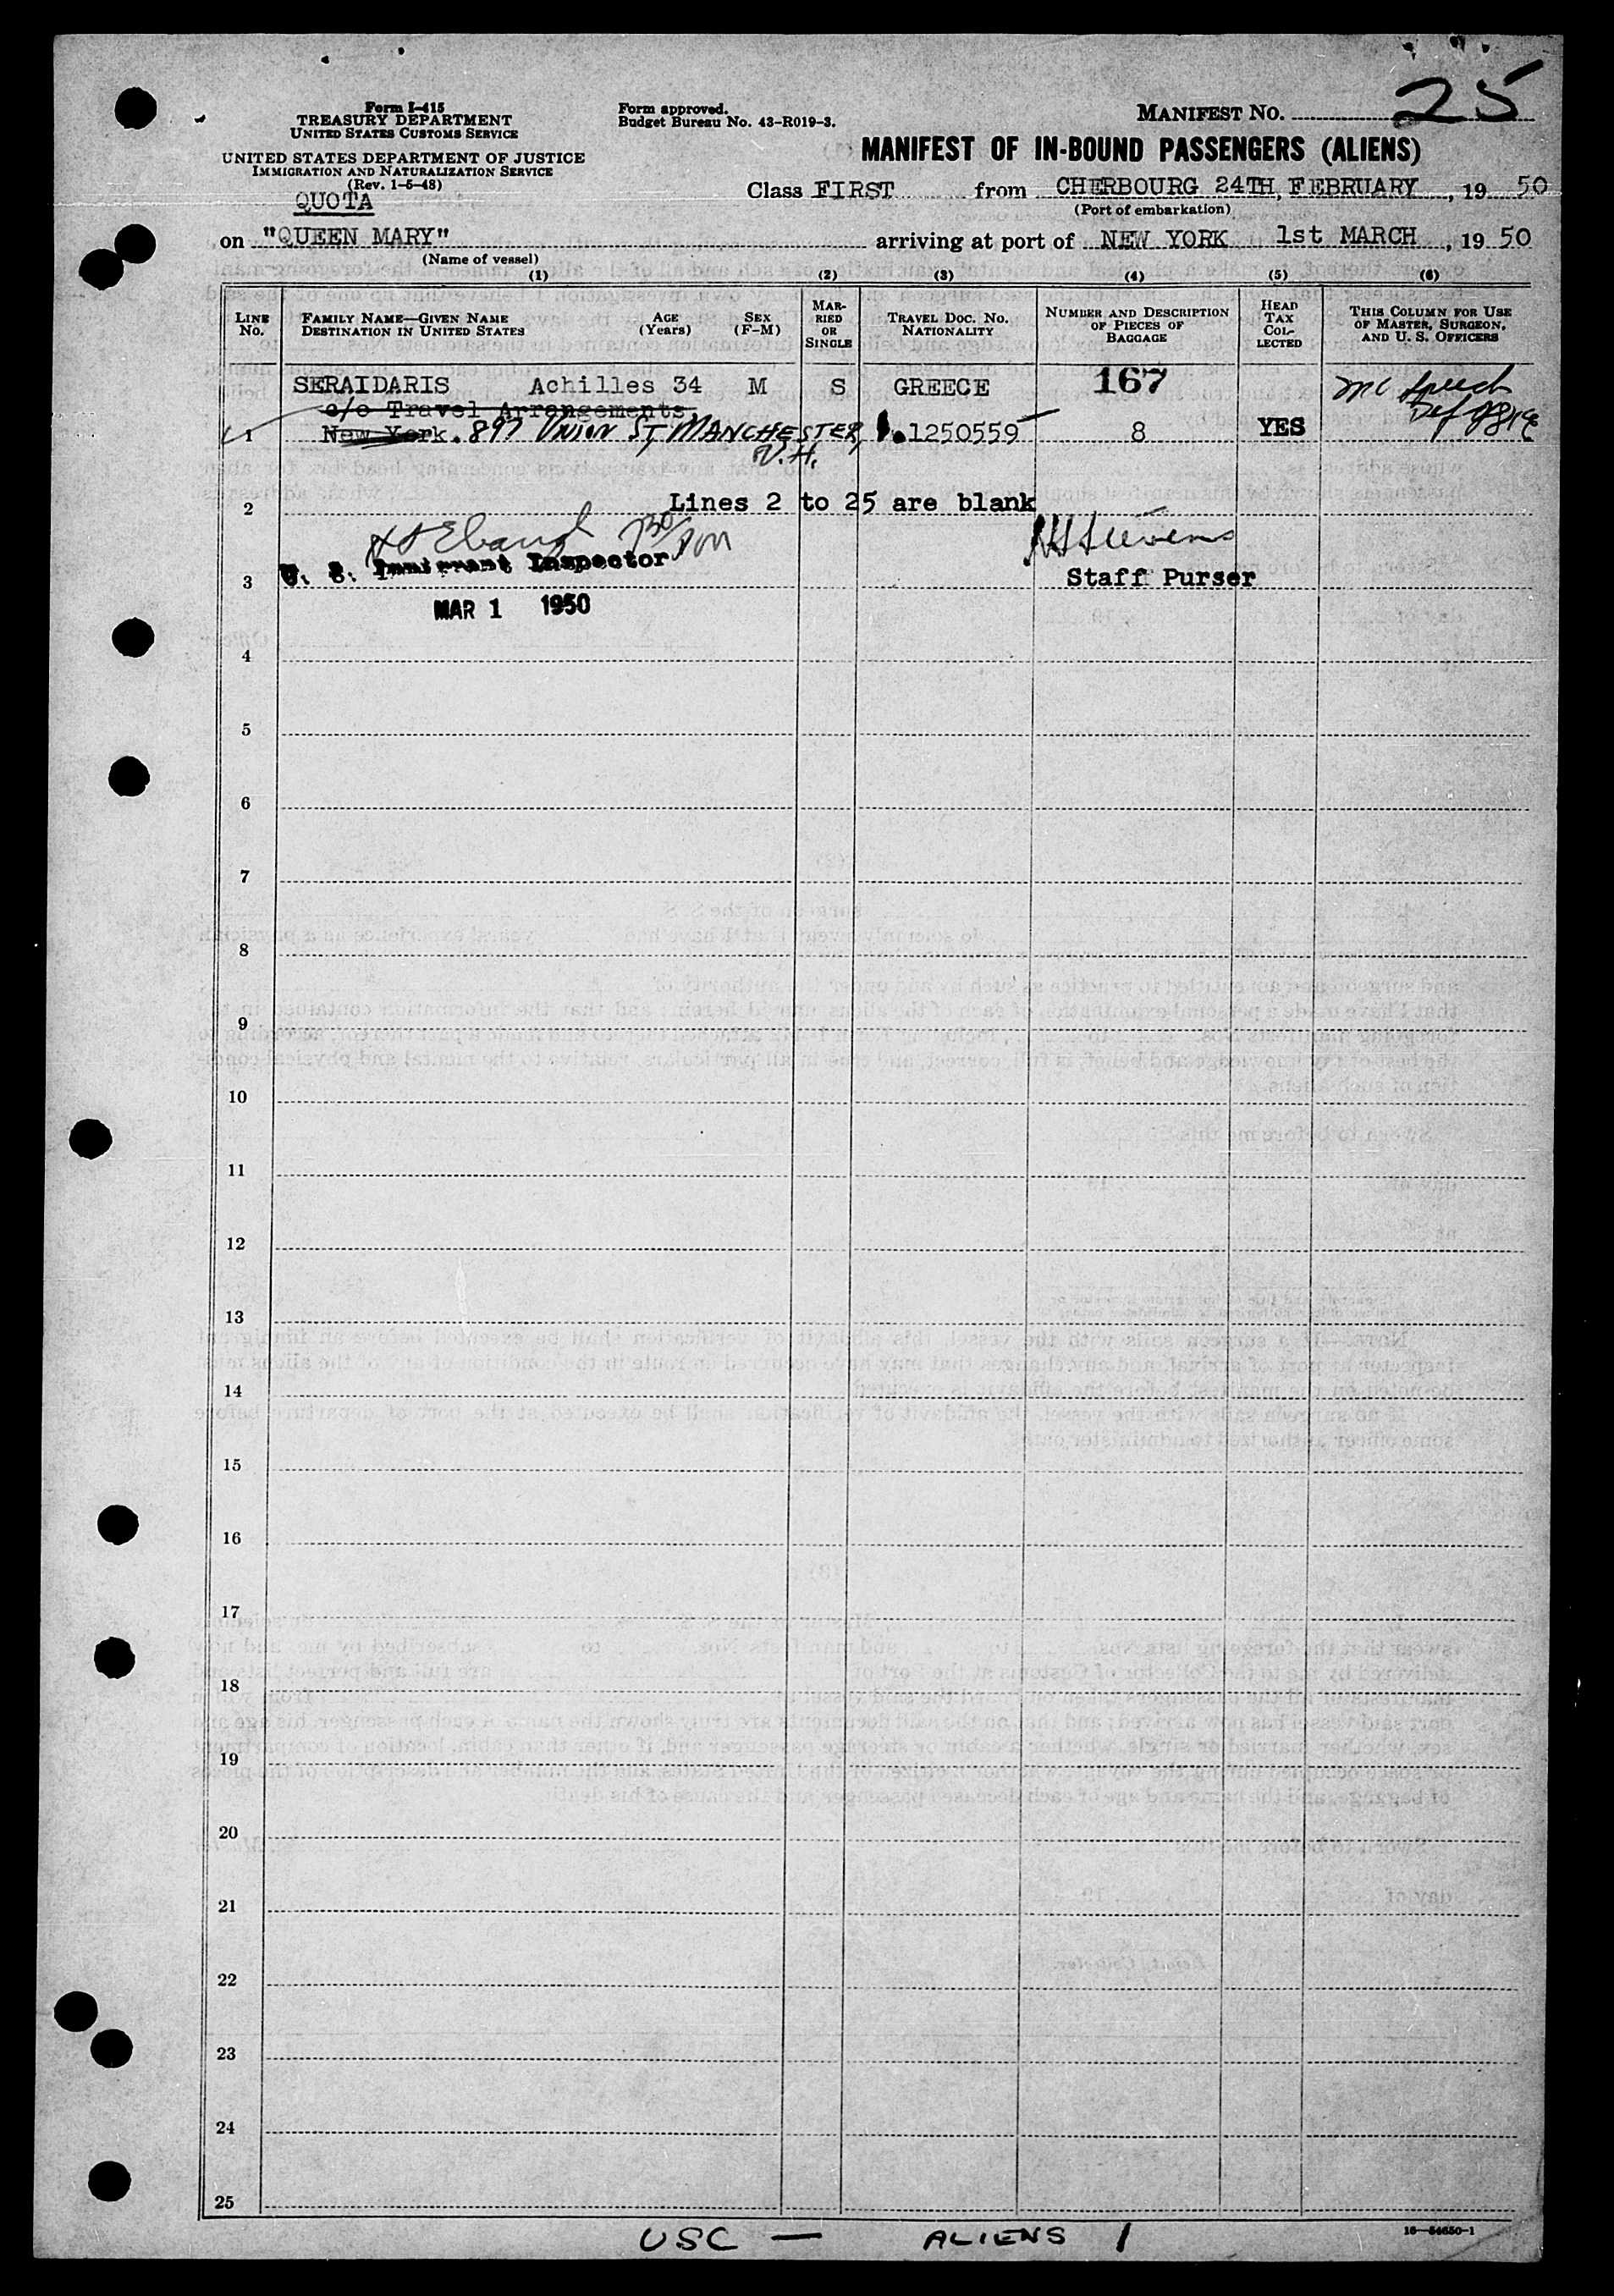 25
Form I-415
TREASURY DEPARTMENT
UNITED STATES CUSTOMS SERVICE
UNITED STATES DEPARTMENT OF JUSTICE
IMMIGRATION AND NATURALIZATION SERVICE
(Rev. 1-5-48)
QUOTA
Form approved.
Budget Bureau No. 43-R019-3.
MANIFEST No.
MANIFEST OF IN-BOUND PASSENGERS (ALIENS)
Class FIRST from CHERBOURG 24TH, FEBRUARY, 19 50
(Port of embarkation)
on "QUEEN MARY" arriving at port of NEW YORK 1st MARCH, 19 50
(Name of vessel)
(1) (2) (3) (4) (5) (6)
LINE No.
FAMILY NAME—GIVEN NAME
DESTINATION IN UNITED STATES
AGE (Years)
SEX (F-M)
MARRIED OR SINGLE
TRAVEL DOC. NO.
NATIONALITY
NUMBER AND DESCRIPTION OF PIECES OF BAGGAGE
HEAD TAX COLLECTED
THIS COLUMN FOR USE OF MASTER, SURGEON, AND U. S. OFFICERS
SERAIDARIS Achilles 34 M S GREECE 167
c/o Travel Arrangements,
1 New York. 897 UNION ST, MANCHESTER, N.H. 1250559 8 YES
MC Speech
Def
2 Lines 2 to 25 are blank
730 PM
U. S. Immigrant Inspector
Stevens
3 Staff Purser
MAR 1 1950
4
5
6
7
8
9
10
11
12
13
14
15
16
17
18
19
20
21
22
23
24
25
USC — ALIENS 1
16—54650-1